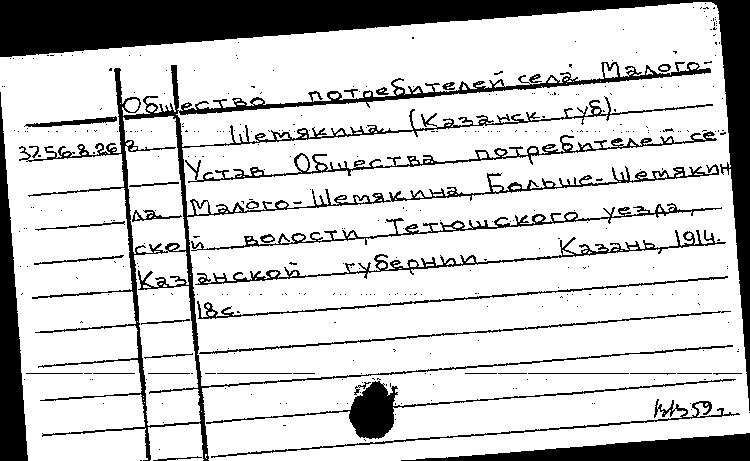 Общество потребителей села Малого-
Шемякина. (Казанск. губ).
37.56.8.268.
Устав Общества потребителей се-
ла Малого-Шемякина, Больше-Шемякин
ской волости, Тетюшского уезда,
Казанской губернии. Казань, 1914.
18 с.